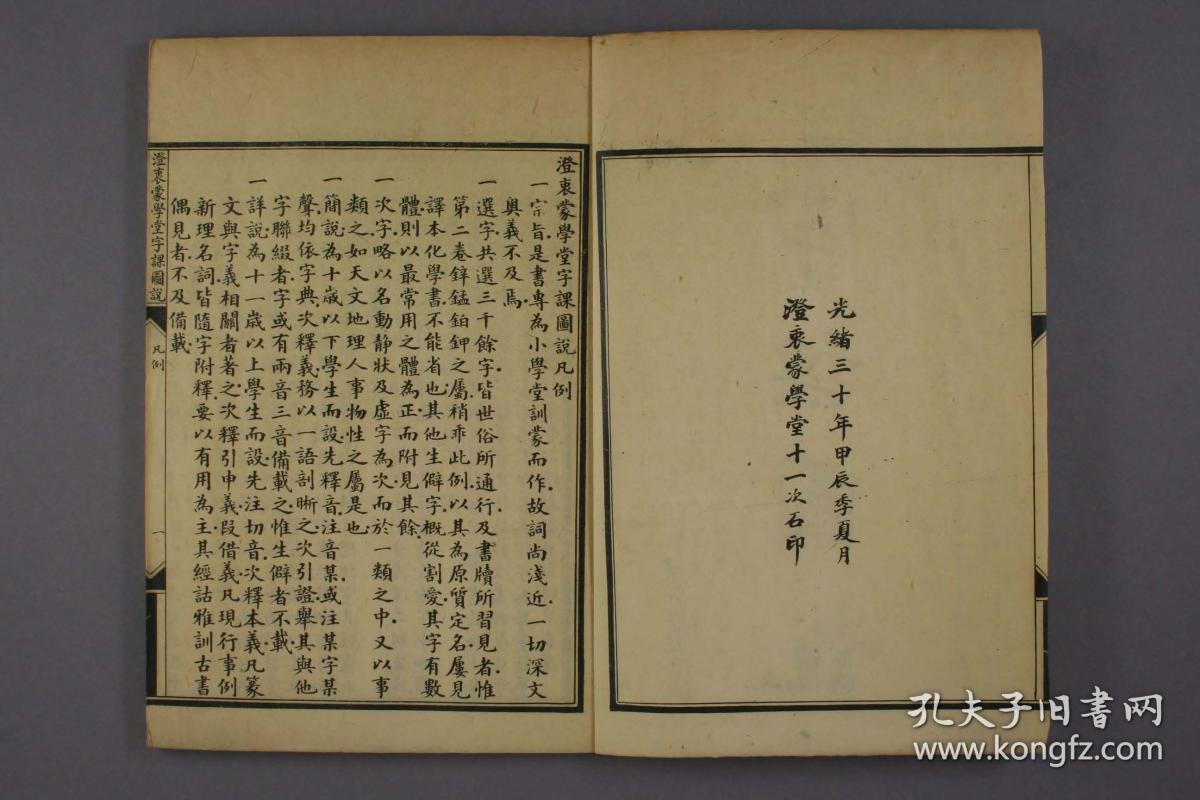 光緒三十年甲辰季夏月
澄衷蒙學堂十一次石印
澄衷蒙學堂字課圖說凡例
一宗旨是書專為小學堂訓蒙而作故詞尚淺近一切深文
奧義不及焉
一選字共選三千餘字皆世俗所通行及書牘所習見者惟
第二卷鋅錳鉑鉀之屬稍乖此例以其為原質定名屢見
譯本化學書不能省也其他生僻字概從割愛其字有數
體則以最常用之體為正而附見其餘
一次字略以名動靜狀及虛字為次而於一類之中又以事
類之如天文地理人事物性之屬是也
一簡說為十歲以下學生而設先釋音注音某或注某字某
聲均依字典次釋義務以一語剖晰之次引證舉其與他
字聯綴者字或有兩音三音備載之惟生僻者不載
一詳說為十一歲以上學生而設先注切音次釋本義凡篆
文與字義相關者著之次釋引申義叚借義凡現行事例
新理名詞皆隨字附釋要以有用為主其經詁雅訓古書
偶見者不及備載
澄衷蒙學堂字課圖說
凡例
一
孔夫子旧书网
www.kongfz.com